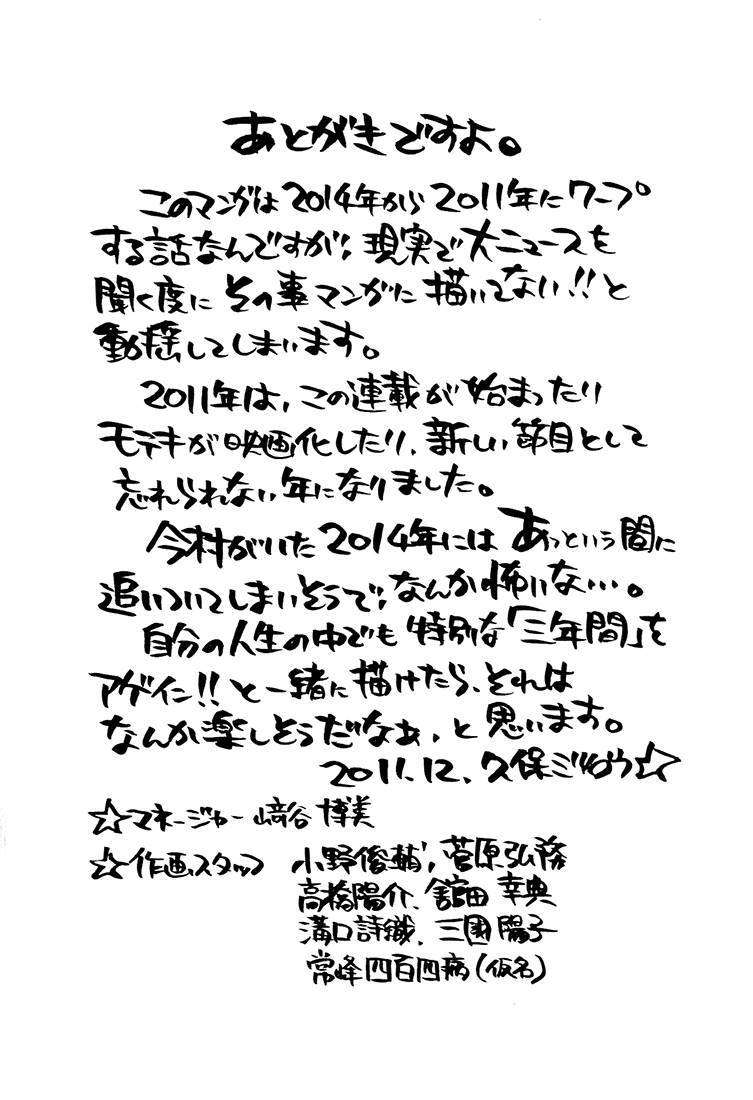 あとがきですよ。
このマンガは2014年から2011年にワープ
する話なんですが、現実で大ニュースを
聞く度にその事マンガに描いてない!!と
動揺してしまいます。
2011年は、この連載が始まったり
モテキが映画化したり、新しい節目として
忘れられない年になりました。
今村がいた2014年にはあっという間に
追いついてしまいそうで、なんか怖いな…。
自分の人生の中でも特別な「三年間」を
アゲイン!!と一緒に描けたら、それは
なんか楽しそうだなぁ、と思います。
2011.12. 久保ミツロウ☆
☆マネージャー 﨑谷 博美
☆作画スタッフ 小野俊輔、菅原弘務
高橋陽介、舘田 幸典
溝口詩織、三國陽子
常峰四百四病(仮名)